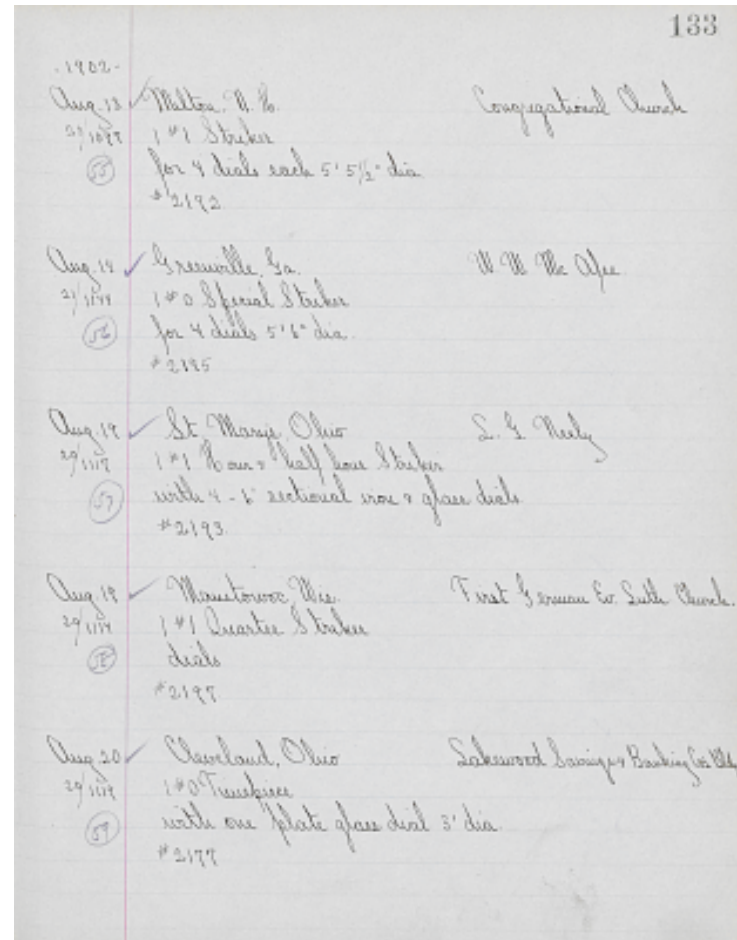 133
-1902-
Aug. 13 ✓ Milton, N. H. Congregational Church
29/1087 1 #1 Striker
(55) for 4 dials each 5' 5 1/2" dia.
#2192
Aug. 14 ✓ Greenville, Ga. W. W. Mc Afee
1 #0 Special Striker
(56) for 4 dials 5' 6" dia.
#2195
Aug. 19 ✓ St. Marys, Ohio L. G. Neely
29/1117 1 #1 Hour & half hour Striker
(57) with 4 - 6' sectional iron & glass dials
#2193.
Aug. 19 ✓ Manitowoc, Wis. First German Ev. Luth Church.
29/1114 1 #1 Quarter Striker
(58) dials
#2197
Aug. 20 ✓ Cleveland, Ohio Lakewood Savings & Banking Co's Bldg
29/1119 1 #0 Timepiece
(59) with one plate glass dial 3' dia.
#2177